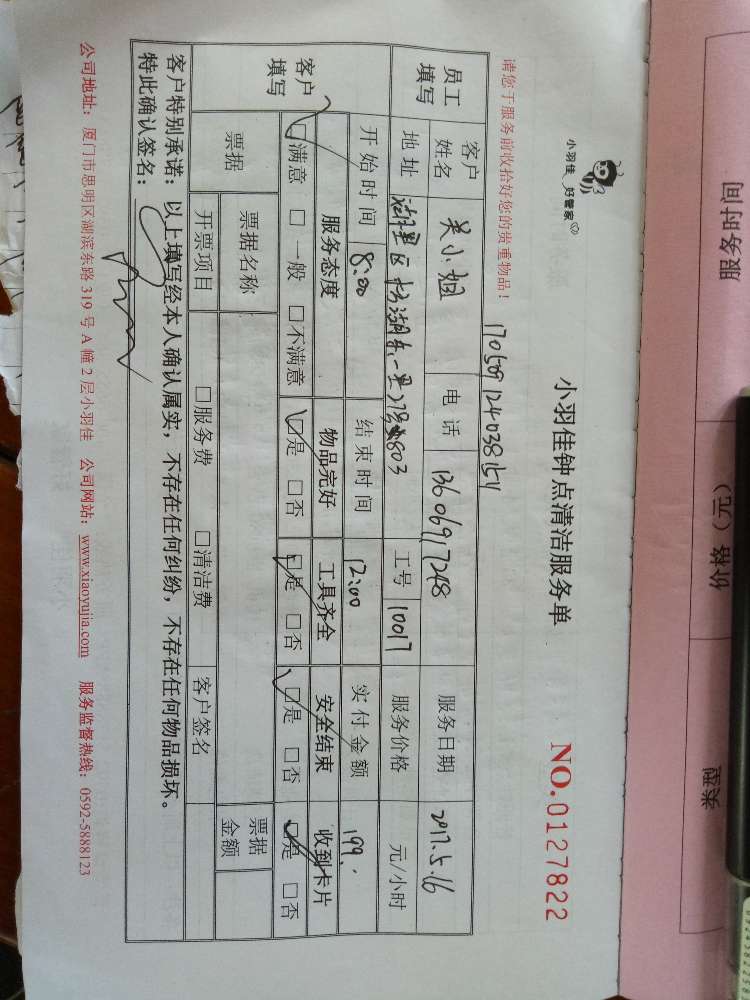 服务时间 价格（元） 类型
小羽佳 好管家
小羽佳钟点清洁服务单
NO.0127822
请您于服务前收拾好您的贵重物品！
员工填写 客户姓名 吴小姐 电话 13606917248 服务日期 2017.5.16
地址 湖里区 803 工号 10017 服务价格 元/小时
客户填写 开始时间 8:00 结束时间 12:00 实付金额 199.
服务态度 物品完好 工具齐全 安全结束 收到卡片
□满意 □一般 □不满意 □是 □否 □是 □否 □是 □否 □是 □否
票据 票据名称 票据金额
开票项目 □服务费 □清洁费 客户签名
客户特别承诺：以上填写经本人确认属实，不存在任何纠纷，不存在任何物品损坏。
特此确认签名：
公司地址：厦门市思明区湖滨东路319号A幢2层小羽佳 公司网站：www.xiaoyujia.com 服务监督热线：0592-5888123